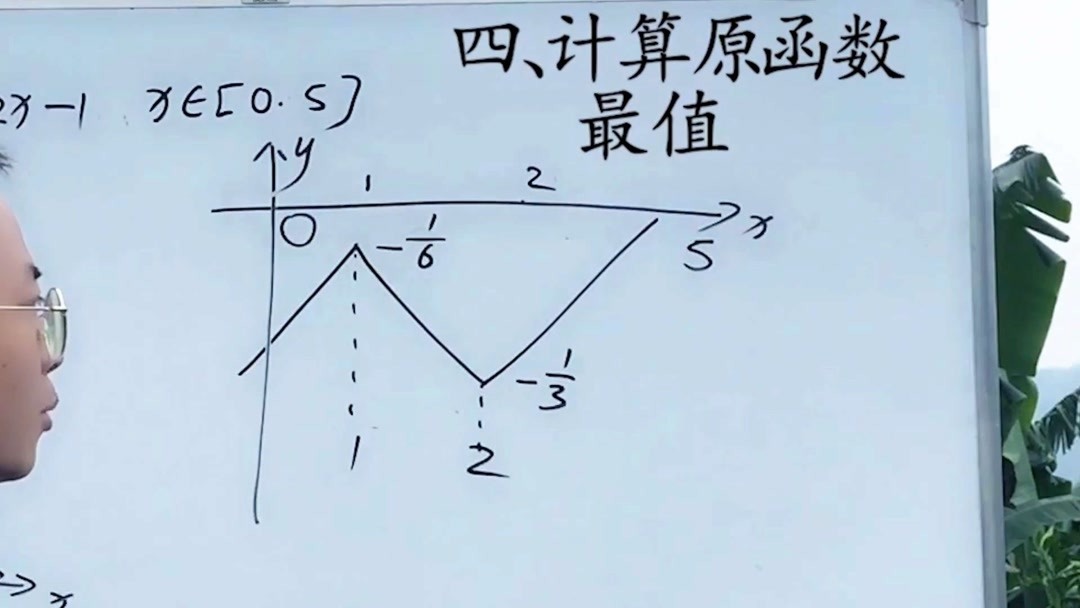 四、计算原函数
最值
2x-1 x∈[0.5]
y
1 2
O x
-1/6
5
-1/3
1 2
x